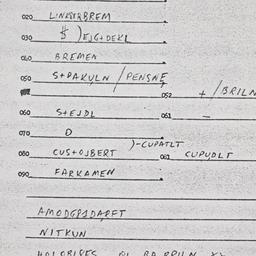 020 LINKSTRBREM
030 $ )EJG+DEKL
040 BREMEN
050 S+PAKULN / PENSNE
052 + / BRILN
060 S+EJDL
061 –
070 D
080 CUS+OJBERT )-CUPATLT
081 CUPUDLT
090 FARKAMEN
AMODGPSDAPFT
NITKUN